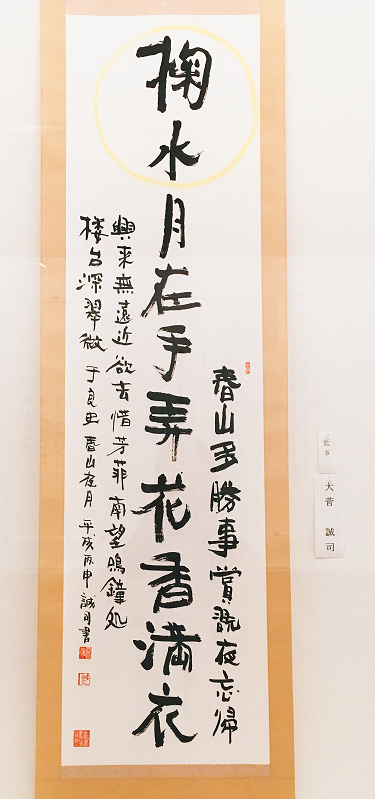 春山多勝事賞翫夜忘帰
掬水月在手弄花香満衣
興来無遠近欲去惜芳菲南望鳴鐘処
楼台深翠微 于良史 春山夜月 平成丙申 誠司書
監事
大菅 誠司